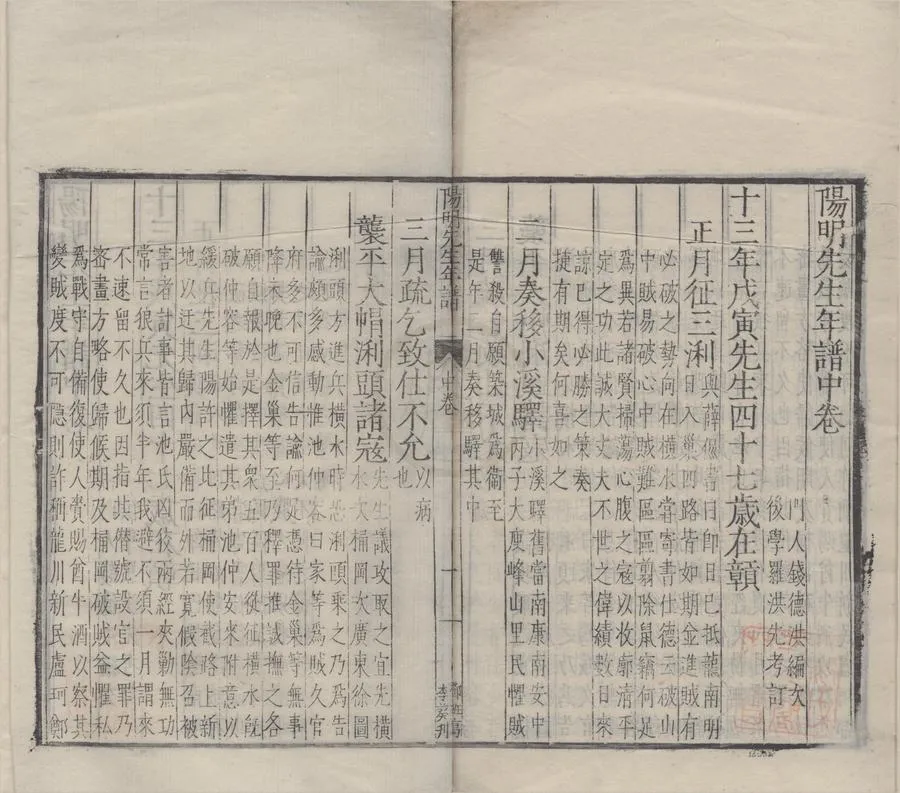 陽明先生年譜中卷
門人錢德洪編次
後學羅洪先考訂
十三年戊寅先生四十七歲在贛
正月征三浰
與薛侃書曰即日已抵龍南明
日入巢四路皆如期金進賊有
必破之勢向在橫水嘗寄書仕德云破山
中賊易破心中賊難區區翦除鼠竊何足
爲異若諸賢掃蕩心腹之寇以收廓清平
定之功此誠大丈夫不世之偉績數日來
諒已得必勝之策奏
捷有期矣何喜如之
二月奏移小溪驛
小溪驛舊當南康南安中
丙子大庾峰山里民懼賊
讐殺自願築城爲衞至
是年二月奏移驛其中
陽明先生年譜
中卷
一
三月疏乞致仕不允
以病
也
襲平大帽浰頭諸寇
先生議攻取之宜先橫
水次桶岡次廣東徐圖
浰頭方進兵橫水時恐浰頭乘之乃爲告
諭頗多感動惟池仲容曰我等爲賊久官
府來不可信告諭何足憑待金巢等無事
降未晚也金巢等至乃釋罪推誠撫之各
願自報於是擇其衆五百人從征橫水旣
破仲容等始懼遣其弟池仲安來附意以
緩兵先生陽許之比征桶岡使截路上新
地以迂其歸內嚴備而外若寬假陰召被
害者計事皆言池氏凶狡兩經夾勦無功
常言狼兵來須半年我避不須一月謂來
不速留不久也因指其僭號設官之罪乃
密畫方略使歸候期及桶岡破賊益懼私
爲戰守自備復使人賫賜酋牛酒以察其
變賊度不可隱則詐稱龍川新民盧珂鄭